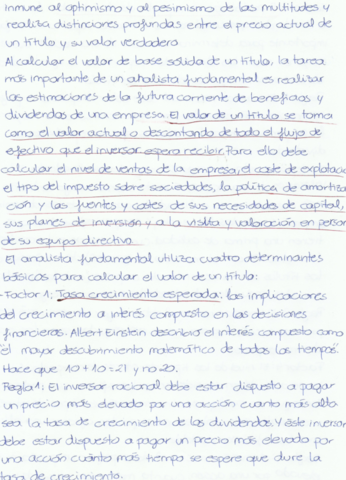 inmune al optimismo y al pesimismo de las multitudes y
realiza distinciones profundas entre el precio actual de
un título y su valor verdadero
Al calcular el valor de base sólida de un título, la tarea
más importante de un analista fundamental es realizar
las estimaciones de la futura corriente de beneficios y
dividendos de una empresa. El valor de un título se toma
como el valor actual o descontando de todo el flujo de
efectivo que el inversor espera recibir. Para ello debe
calcular el nivel de ventas de la empresa, el coste de explotació
el tipo del impuesto sobre sociedades, la política de amortiza
ción y las fuentes y costes de sus necesidades de capital,
sus planes de inversión y a la visita y valoración en person
de su equipo directivo.
El analista fundamental utiliza cuatro determinantes
básicos para calcular el valor de un título:
-Factor 1: Tasa crecimiento esperada: las implicaciones
del crecimiento a interés compuesto en las decisiones
financieras. Albert Einstein describió el interés compuesto como
el mayor descubrimiento matemático de todos los tiempos.
Hace que 10+10=21 y no 20.
Regla 1: El inversor racional debe estar dispuesto a pagar
un precio más elevado por una acción cuanto más alta
sea la tasa de crecimiento de los dividendos. Y este inversor
debe estar dispuesto a pagar un precio más elevado por
una acción cuánto más tiempo se espere que dure la
tasa de crecimiento.